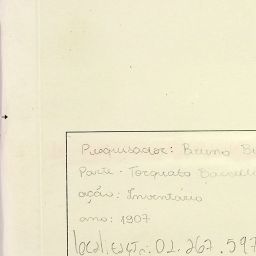 Pesquisador: Bruno
Parte: Torquato
ação: Inventário
ano: 1907
local. 02.267.597